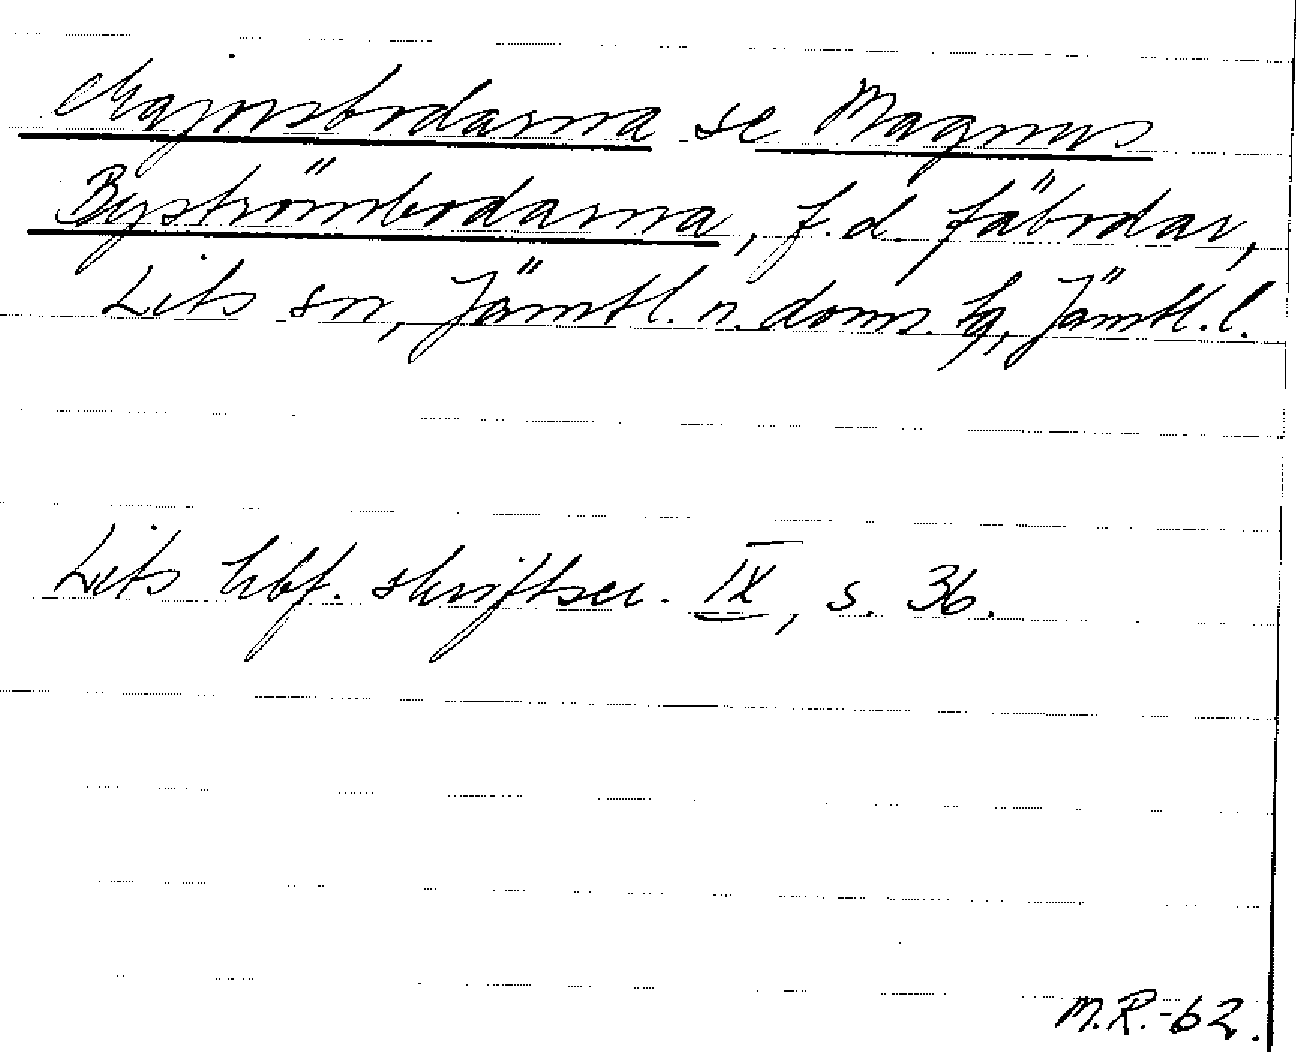 Majorsbodarna se Magnus
Byströmbodarna, f.d. fäbodar,
Lits sn, Jämtl. n. doms. tg, Jämtl. l.
Lits hbf. skriftser. IX, s. 36.
M.R.-62.